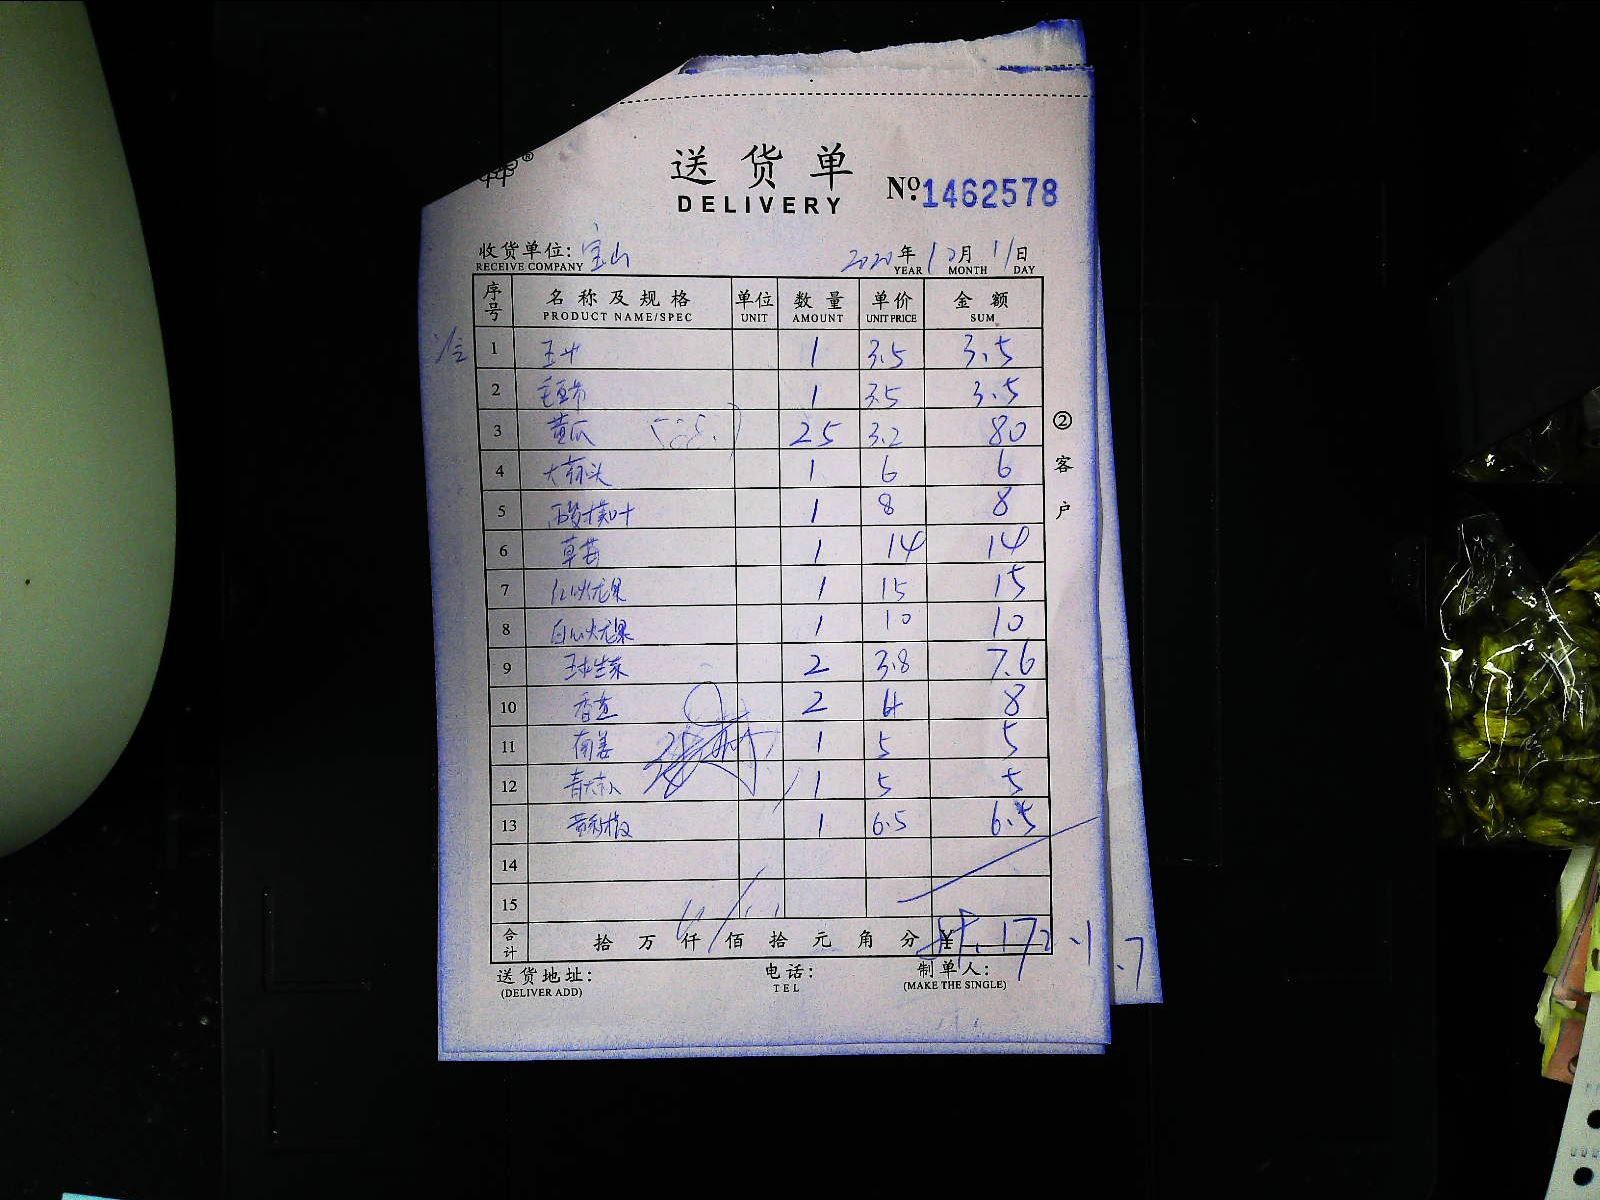 送货单
DELIVERY
№ 1462578
收货单位: 宝山 2020年12月11日
RECEIVE COMPANY YEAR MONTH DAY
序号 名称及规格 单位 数量 单价 金额
PRODUCT NAME/SPEC UNIT AMOUNT UNIT PRICE SUM
1 1 3.5 3.5
2 1 3.5 3.5
3 黄瓜 25 3.2 80
4 大蒜头 1 6 6
5 1 8 8
6 草莓 1 14 14
7 红心火龙果 1 15 15
8 白心火龙果 1 10 10
9 球生菜 2 3.8 7.6
10 香芷 2 4 8
11 南姜 1 5 5
12 1 5 5
13 黄彩椒 1 6.5 6.5
14
15
合计 拾 万 仟 佰 拾 元 角 分 ¥ 172.1
送货地址: 电话: 制单人:
(DELIVER ADD) TEL (MAKE THE SINGLE)
②客户